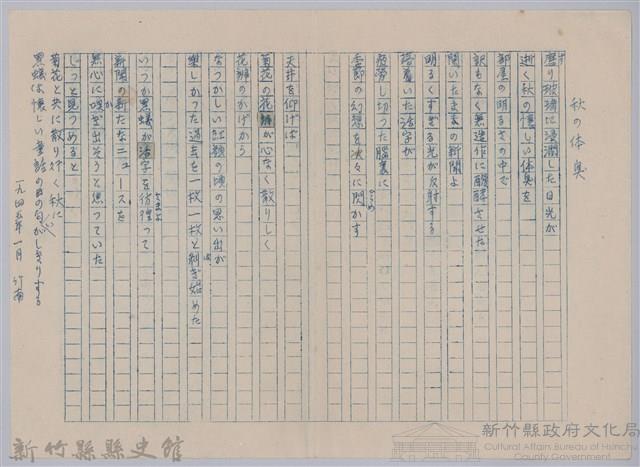 秋の体臭
磨り玻璃に浸潤した日光が
逝く秋の懐しい体臭を
部屋の明るさの中で
訳もなく無造作に醗酵させた
開いたままの新聞よ
明るくすぎる光が反射する
落着いた活字が
疲労し切った脳裏に
季節の幻想を次々に閃かす
天井を仰げば
菊花の花瓣が心なく散りしく
花瓣のかげから
なつかしい紅顔の頃の思い出が
楽しかった過去を一枚一枚と剥ぎ始めた
いつか黒蟻が活字を彷徨って
新聞の新たなニュースを
無心に嗅ぎ出そうと思っていた
じっと見つめると
菊花と共に散り行く秋に
黒蟻は懐しい童話の日の匂いがしきりする
一九四五年一月 竹南
新竹縣縣史館
新竹縣政府文化局
Cultural Affairs Bureau of Hsinchu
County Government